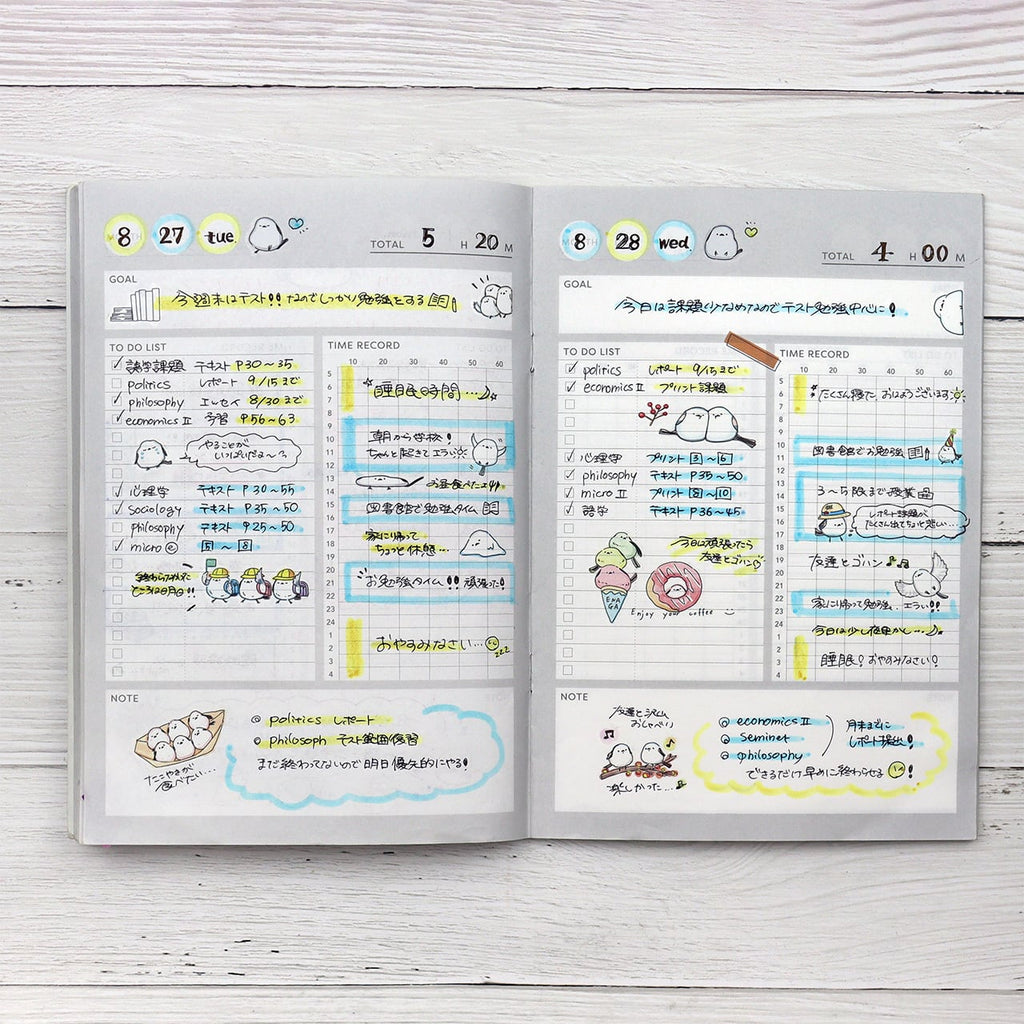 8 27 tue
TOTAL 5 H 20 M
GOAL
今週末はテスト!! なのでしっかり勉強をする
TO DO LIST
語学課題 テキスト P30〜35
politics レポート 9/15まで
philosophy エッセイ 8/30まで
economics II 予習 P56〜63
やることが
いっぱいだよ〜?
心理学 テキスト P30〜55
sociology テキスト P35〜50
philosophy テキスト P25〜50
micro 5〜8
TIME RECORD
10 20 30 40 50 60
5
6
7
8
9
10
11
12
13
14
15
16
17
18
19
20
21
22
23
24
1
2
3
4
睡眠の時間…
朝から学校!
ちゃんと起きてエラい
お昼食べたよ
図書館で勉強タイム
家に帰って
ちょっと休憩…
お勉強タイム!! 頑張った!
おやすみなさい…
zzz
NOTE
たこやきが
食べたい…
politics レポート
philosoph テスト範囲復習
まだ終わってないので明日優先的にやる!
8 28 wed
TOTAL 4 H 00 M
GOAL
今日は課題少なめなのでテスト勉強中心に!
TO DO LIST
politics レポート 9/15まで
economics II プリント課題
心理学 プリント 3〜6
philosophy テキスト P35〜50
micro II プリント 8〜10
語学 テキスト P36〜45
今日は頑張ったら
友達とゴハン
ENAGA
Enjoy your coffee
TIME RECORD
10 20 30 40 50 60
5
6
7
8
9
10
11
12
13
14
15
16
17
18
19
20
21
22
23
24
1
2
3
4
たくさん寝た おはようございます
図書館でお勉強
3〜5限まで授業
レポート課題が
たくさん出てちょっと悲しい…
友達とゴハン
家に帰って勉強… エラい!!
今日は少し夜更かし…
睡眠! おやすみなさい!
NOTE
おしゃべり
楽しかった…
economics II
seminer
philosophy
月末までに
レポート提出!
できるだけ早めに終わらせる!